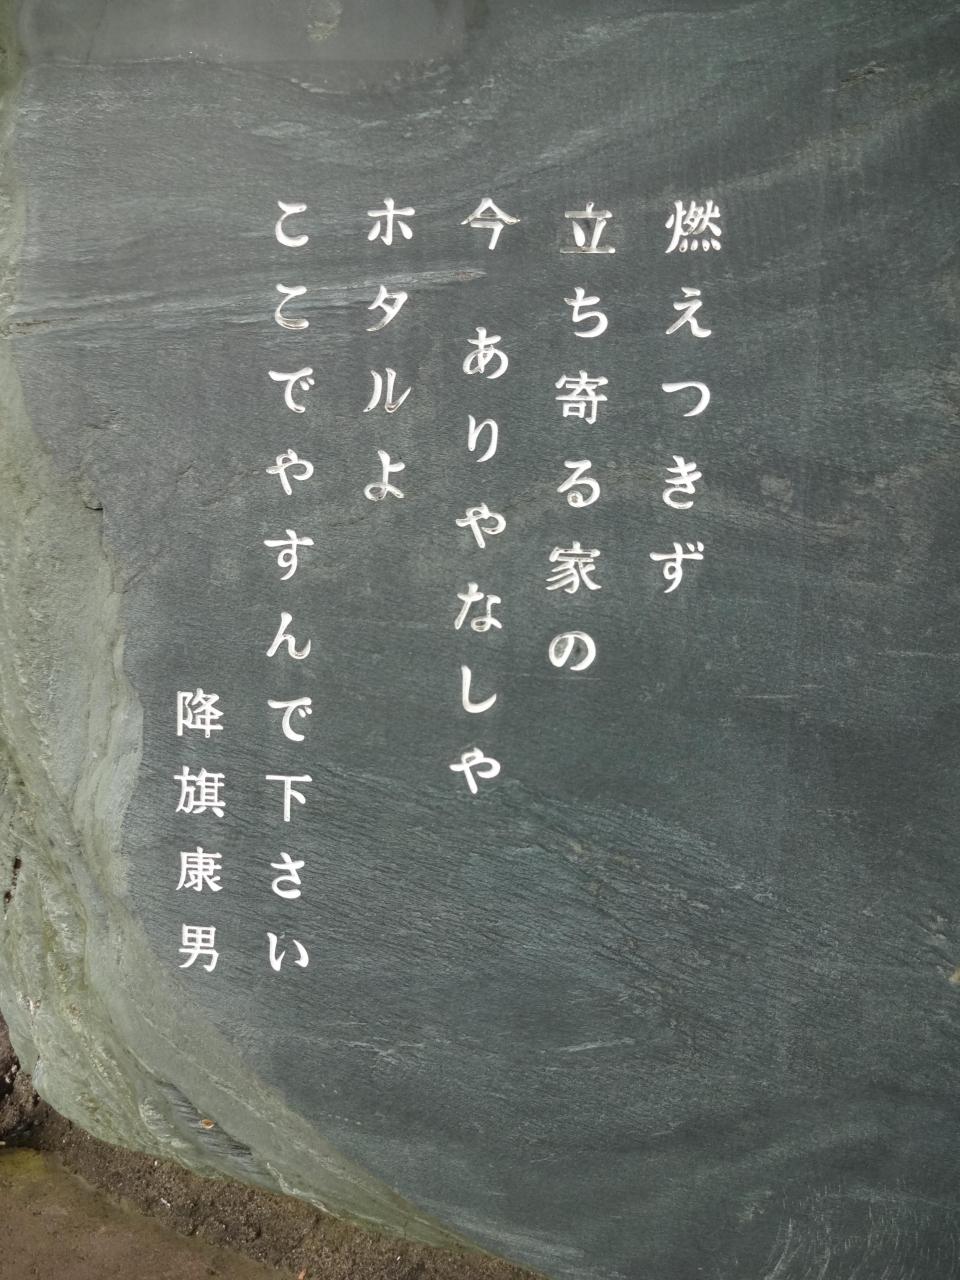 燃えつきず
立ち寄る家の
今　ありやなしや
ホタルよ
ここでやすんで下さい
降旗康男